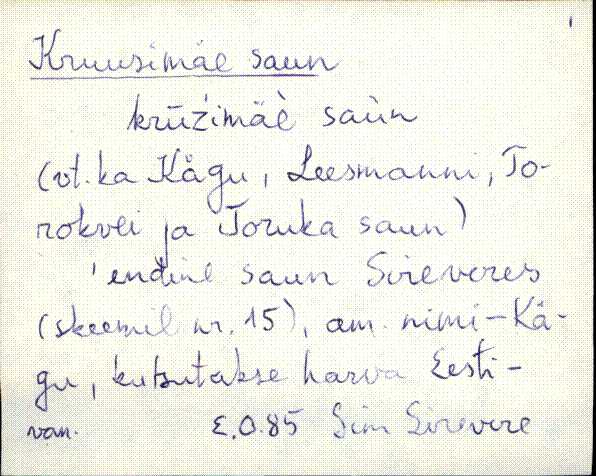 Kruusimäe saun
krūžimäè saùn
(vt. ka Kägu, Leesmanni, To-
rokvei ja Toruka saun)
'endine saun Sireveres
(skeemil nr. 15), am. nimi - Kä-
gu, kutsutakse harva Eesti-
van. E.O.85 Sim Sirevere